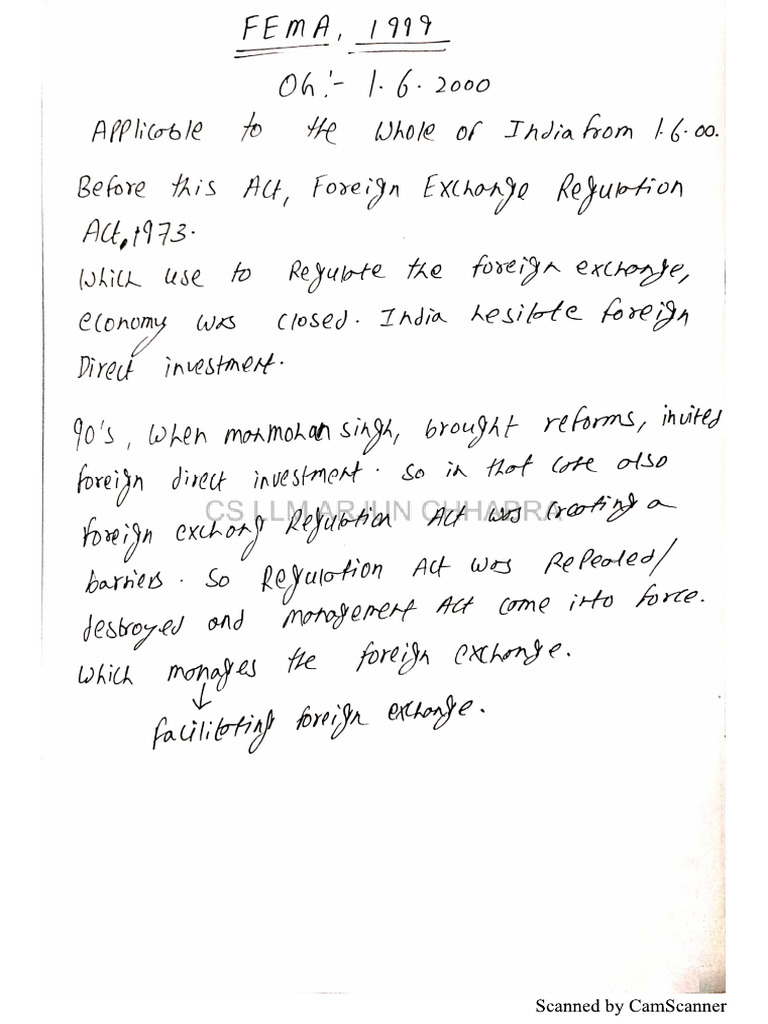 FEMA, 1999
On:- 1.6.2000
Applicable to the whole of India from 1.6.00.
Before this Act, Foreign Exchange Regulation
Act, 1973.
Which use to Regulate the foreign exchange,
economy was closed. India hesitate foreign
Direct investment.
90's, when manmohan singh, brought reforms, invited
foreign direct investment. so in that case also
CS LLM ARJUN CHHABRA
foreign exchang Regulation Act was creating a
barriers. So Regulation Act was Repealed/
destroyed and management Act come into force.
Which manages the foreign exchange.
↓
facilitating foreign exchange.
Scanned by CamScanner